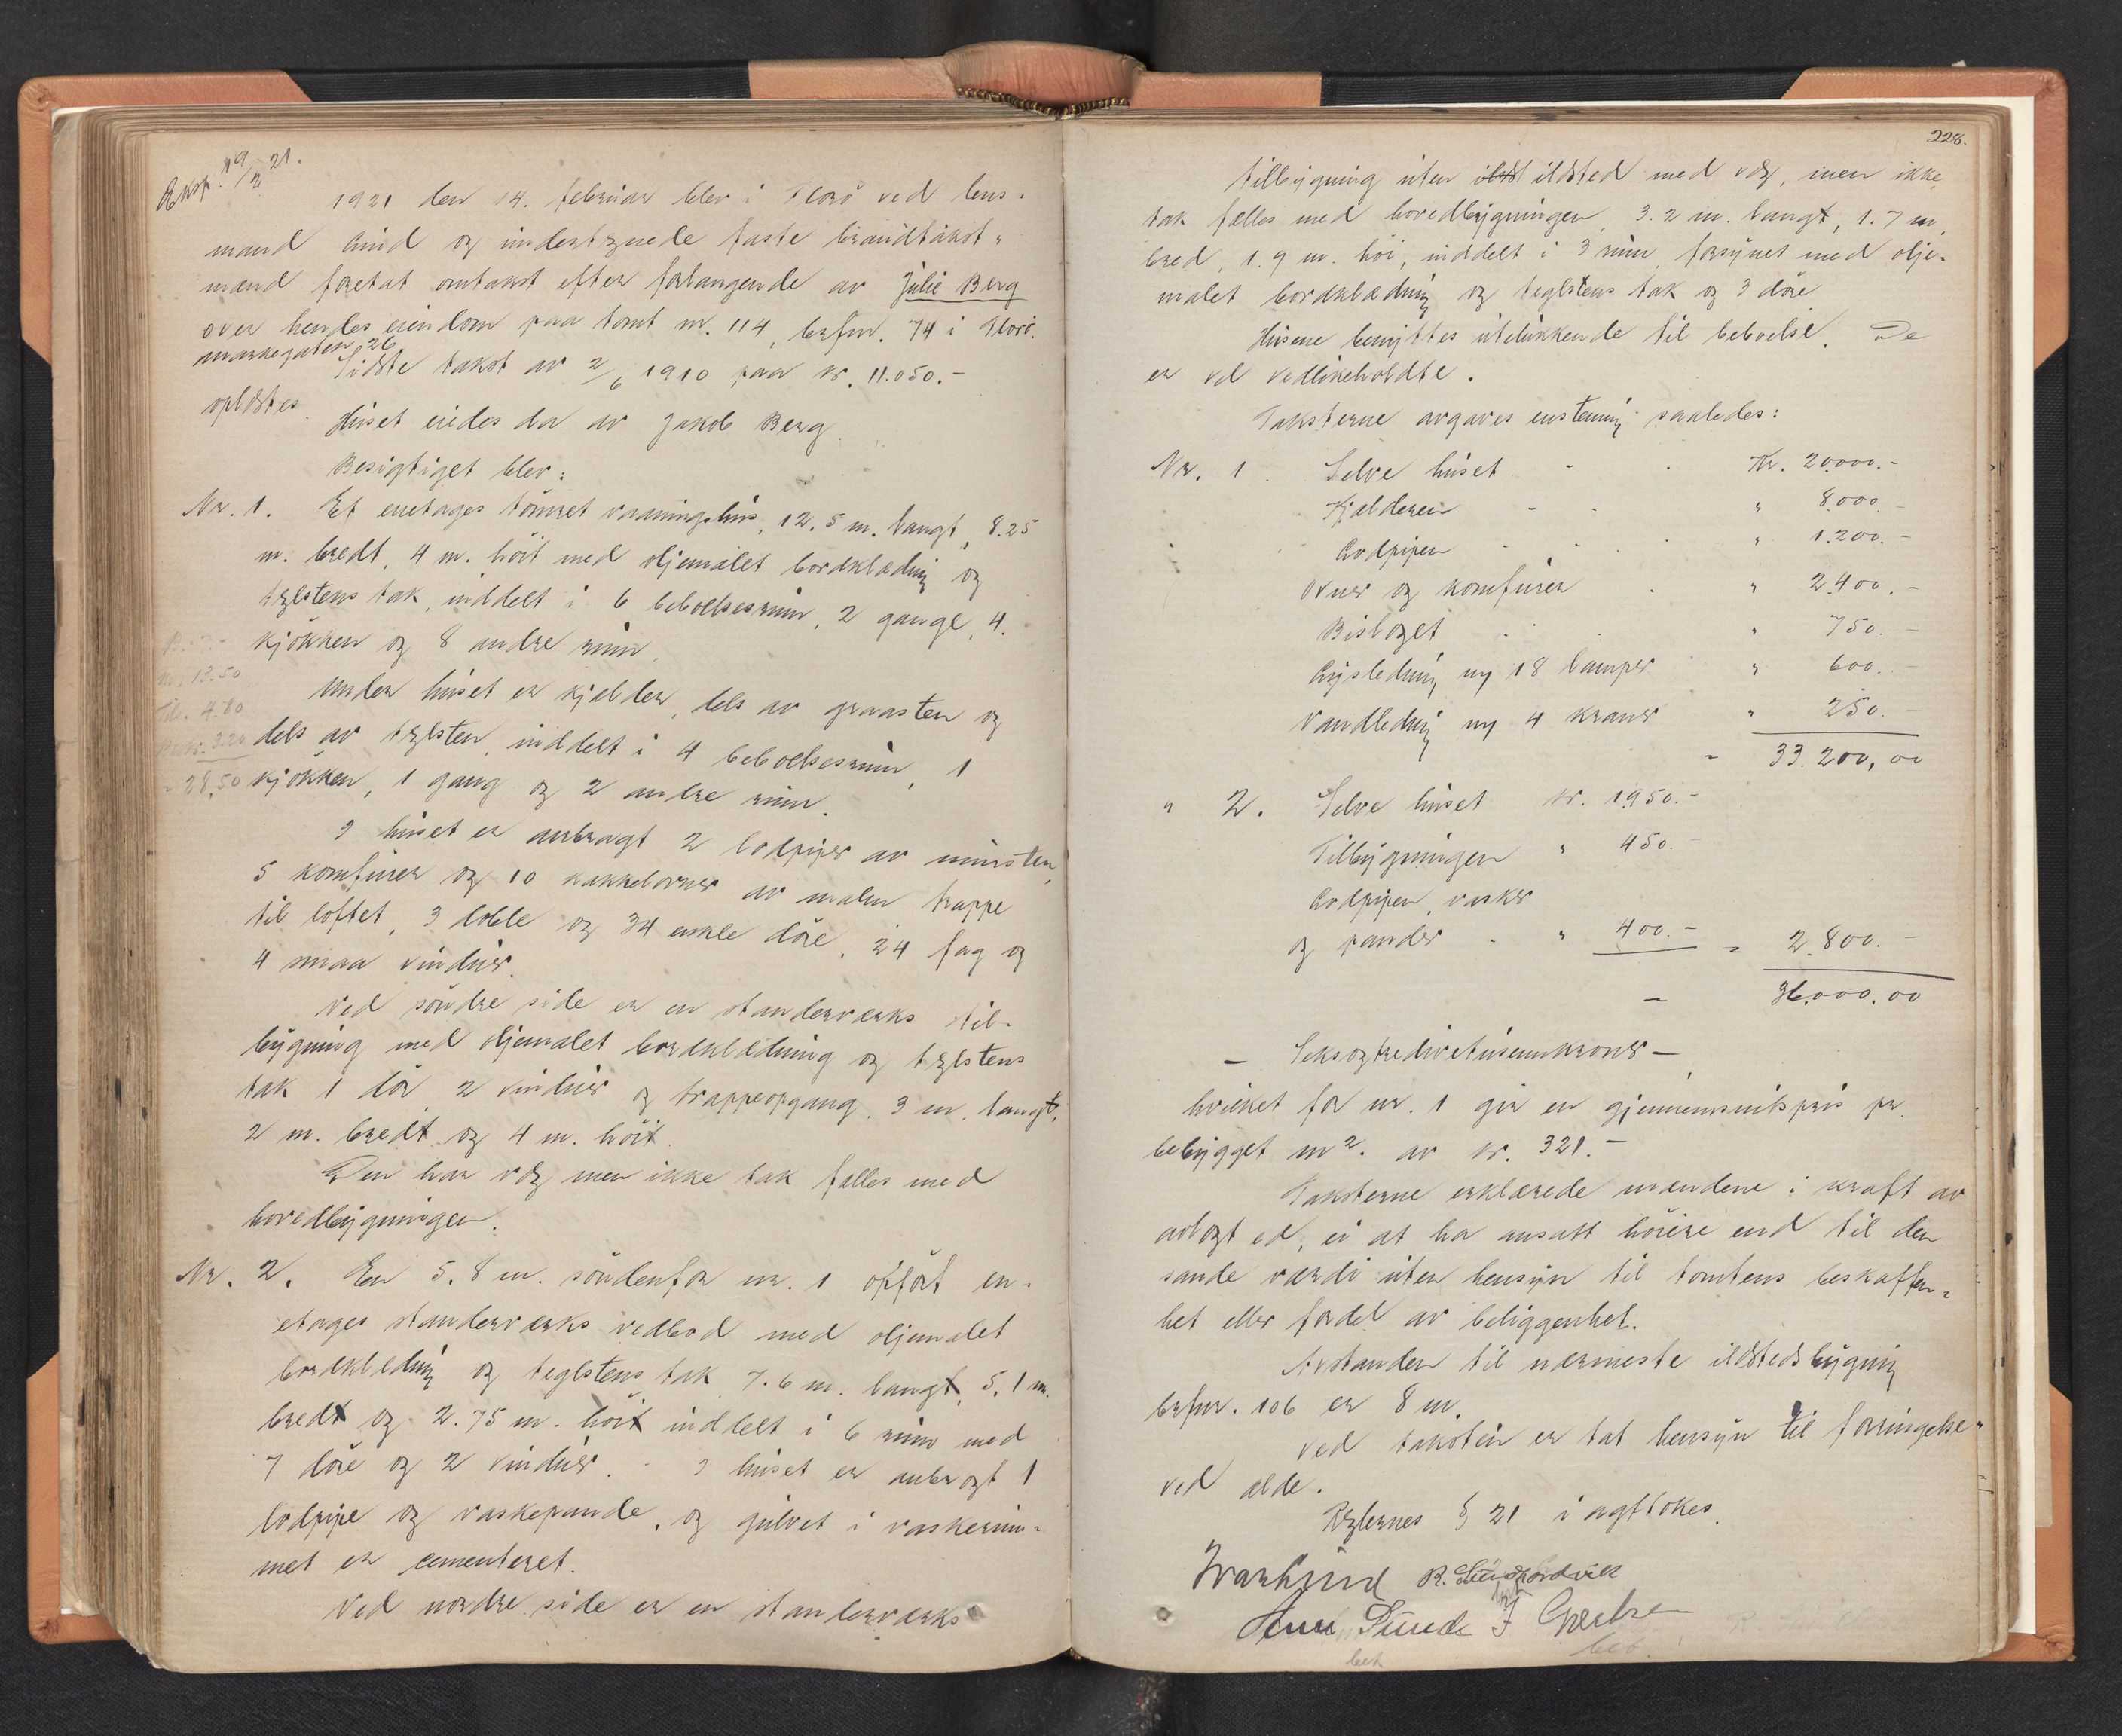 Eksp. 19/2 21.
1921 den 14. februar blev i Florö ved lens-
mand Lind og undertegnede faste brandtakst-
mænd foretat omtakst efter forlangende av Julie Berg
over hendes eiendom paa tomt nr. 114, brfnr. 74 i Florö.
Markegaten 26
Sidste takst av 2/6 1910 paa kr. 11.050.-
oplæstes.
Huset eiedes da av Jakob Berg.
Besigtiget blev:
Nr. 1. Et enetages tömret vaaningshus, 12.5 m. langt, 8.25
m. bredt, 4 m. höit med oljemalet bordklædning og
teglstens tak, inddelt i 6 beboelsesrum, 2 gange, 4
kjökken og 8 andre rum.
13.50
Under huset er kjelder, dels av graasten og
4.80
dels av teglsten, inddelt i 4 beboelsesrum, 1
3.20
kjökken, 1 gang og 2 andre rum.
28,50
I huset er anbragt 2 lodpiper av mursten,
5 komfurer og 10 kakkelovner av malm, trappe
til loftet, 3 doble og 34 enkle döre, 24 fag og
4 smaa vinduer.
Ved söndre side er en standerværks til-
bygning med oljemalet bordklædning og teglstens
tak 1 dör, 2 vinduer og trappeopgang, 3 m. langt,
2 m. bredt og 4 m. höit.
Den har væg men ikke tak fælles med
hovedbygningen.
Nr. 2. En 5.8 m. söndenfor nr. 1 opfört en-
etages standerværks vedbod med oljemalet
bordklædning og teglstens tak 7.6 m. langt, 5.1 m.
bredt og 2.75 m. höit inddelt i 6 rum med
7 döre og 2 vinduer. - I huset er anbragt 1
lodpipe og vaskepande, og gulvet i vaskerum-
met er cementeret.
Ved nordre side er en standerværks
228.
tilbygning uten ildst ildsted med væg, men ikke
tak fælles med hovedbygningen, 3.2 m. langt, 1.7 m.
bred, 1.9 m. höi, inddelt i 3 rum, forsynet med olje-
malet bordklædning og teglstens tak og 3 döre
Husene benyttes utelukkende til beboelse. De
er vel vedlikeholdte.
Taksterne avgaves enstemmig saaledes:
Nr. 1. Selve huset - . Kr. 20000.-
Kjelderen - - " 8.000.-
Lodpipen . . " 1.200.-
Ovner og komfurer . " 2400.-
Bislaget . . " 750.-
Lysledning ny 18 lamper " 600.-
Vandledning ny 4 kraner " 250.-
- 33.200,00
" 2. Selve huset kr. 1950.-
Tilbygningen " 450.-
Lodpipen, vasker
og pander . " 400.- = 2.800.-
- 36.000.00
- Seksogtredivetusenkroner -
hvilket for nr. 1 gir en gjennemsnitspris pr.
bebygget m². av kr. 321.-
Taksterne erklærede mændene i kraft av
avlagt ed, ei at ha ansatt höiere end til den
sande værdi uten hensyn til tomtens beskaffen-
het eller fordel av beliggenhet.
Avstanden til nærmeste ildstedsbygning
brfnr. 106 er 8 m.
Ved taksten er tat hensyn til forringelse
ved ælde.
Reglernes § 21 iagttokes.
Ivar Lind R.
Sunde J